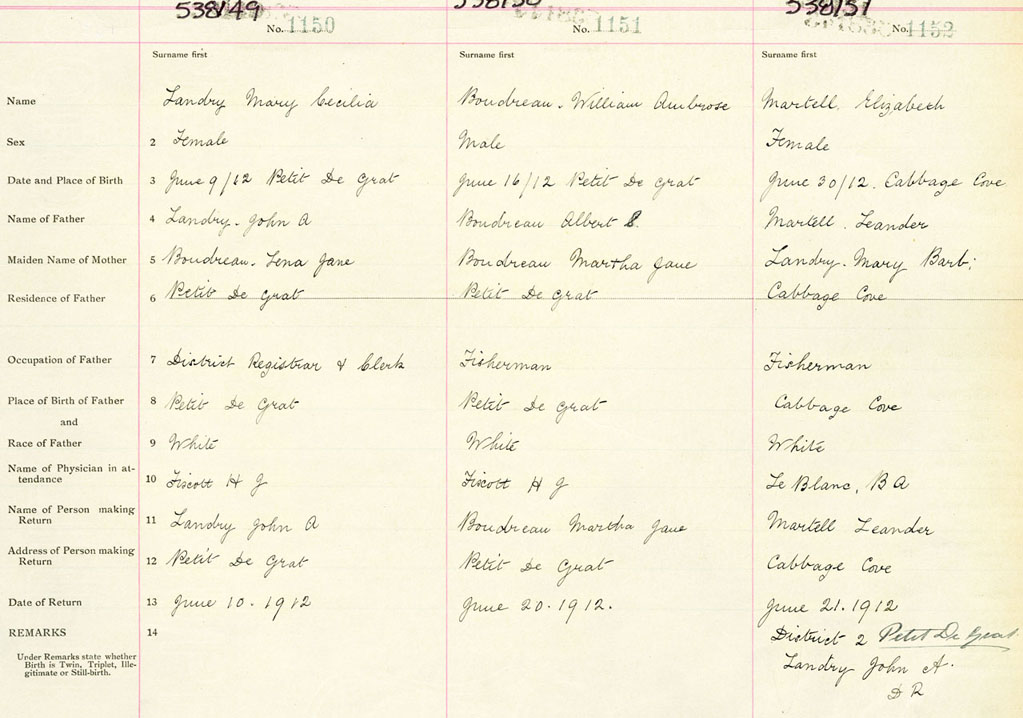 538/49 538/50 538/51
No. 1150 No. 1151 No. 1152
Surname first Surname first Surname first
Name Landry Mary Cecilia Boudreau. William Ambrose Martell. Elizabeth
Sex 2 Female Male Female
Date and Place of Birth 3 June 9/12 Petit De Grat June 16/12 Petit De Grat June 30/12. Cabbage Cove
Name of Father 4 Landry. John A Boudreau Albert S. Martell. Leander
Maiden Name of Mother 5 Boudreau. Lena Jane Boudreau Martha Jane Landry. Mary Barb;
Residence of Father 6 Petit De Grat Petit De Grat Cabbage Cove
Occupation of Father 7 District Registrar & Clerk Fisherman Fisherman
Place of Birth of Father 8 Petit De Grat Petit De Grat Cabbage Cove
and
Race of Father 9 White White White
Name of Physician in at-
tendance 10 Fiscott H J Fiscott H J Le Blanc, B A
Name of Person making
Return 11 Landry John A Boudreau Martha Jane Martell Leander
Address of Person making
Return 12 Petit De Grat Petit De Grat Cabbage Cove
Date of Return 13 June 10. 1912 June 20. 1912. June 21. 1912
REMARKS 14 District 2 Petit De Grat
Under Remarks state whether
Birth is Twin, Triplet, Ille-
gitimate or Still-birth.
Landry John A.
D R